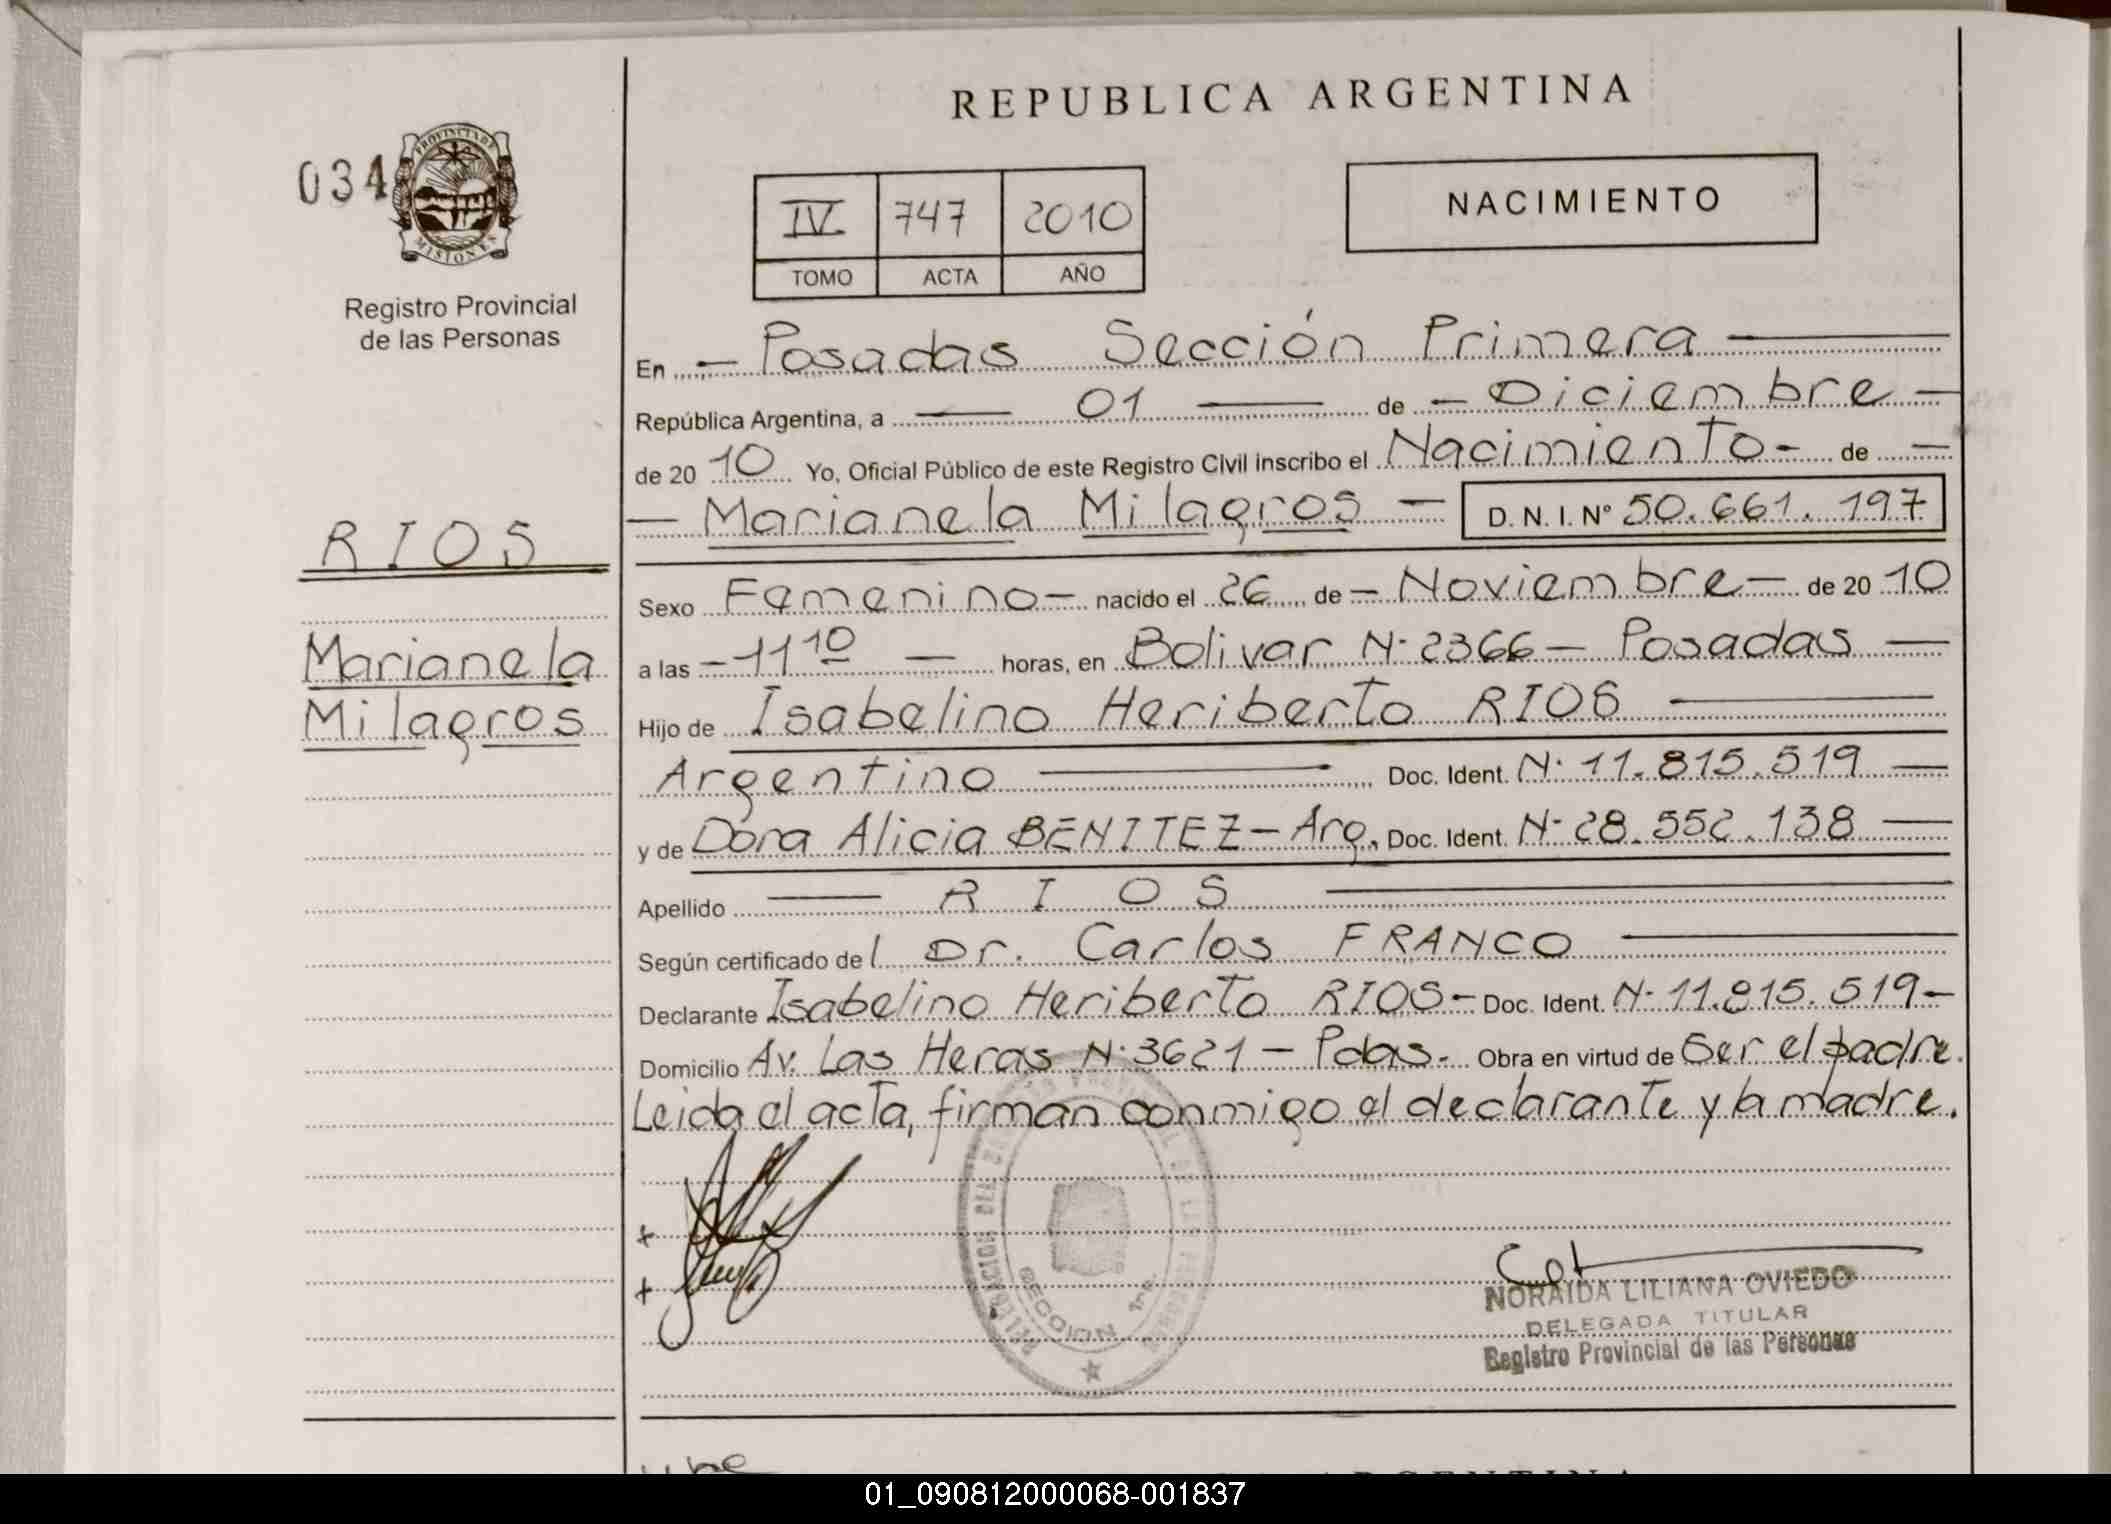 REPUBLICA ARGENTINA
034
PROVINCIA DE
MISIONES
Registro Provincial
de las Personas
IV 747 2010
TOMO ACTA AÑO
NACIMIENTO
En - Posadas Sección Primera
República Argentina, a 01 de - Diciembre -
de 20 10 Yo, Oficial Público de este Registro Civil inscribo el Nacimiento - de -
- Marianela Milagros - D. N. I. Nº 50.661.197
RIOS
Marianela
Milagros
Sexo Femenino - nacido el 26 de - Noviembre - de 20 10
a las - 11 10 - horas, en Bolivar N· 2366 - Posadas -
Hijo de Isabelino Heriberto RIOS
Argentino Doc. Ident. N· 11.815.519 -
y de Dora Alicia BENITEZ - Arg. Doc. Ident. N· 28.552.138 -
Apellido RIOS
Según certificado del Dr. Carlos FRANCO
Declarante Isabelino Heriberto RIOS - Doc. Ident. N· 11.815.519 -
Domicilio Av. Las Heras N· 3621 - Pdas. Obra en virtud de Ser el padre.
Leida el acta, firman conmigo el declarante y la madre.
SECCION 1ra.
NORAIDA LILIANA OVIEDO
DELEGADA TITULAR
Registro Provincial de las Personas
ARGENTINA
01_090812000068-001837